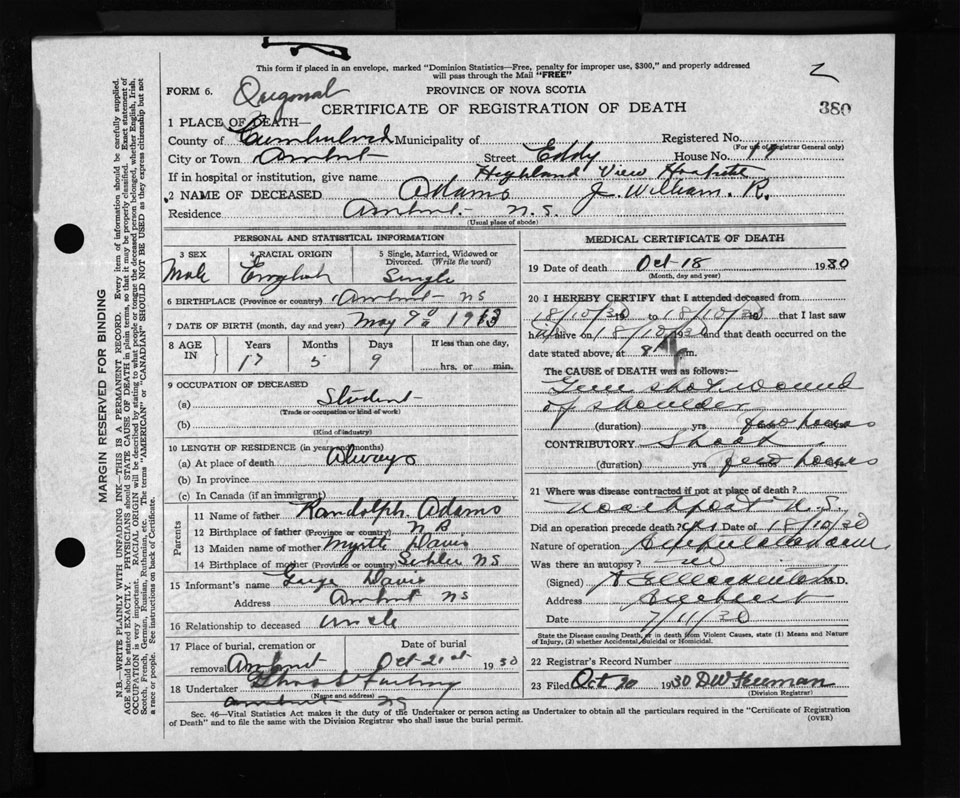 This form if placed in an envelope, marked "Dominion Statistics—Free, penalty for improper use, $300," and properly addressed
will pass through the Mail "FREE"
2
FORM 6. Original PROVINCE OF NOVA SCOTIA
CERTIFICATE OF REGISTRATION OF DEATH 380
1 PLACE OF DEATH—
County of Cumberland Municipality of Registered No.
(For use of Registrar General only)
City or Town Amherst Street Eddy House No. 19
If in hospital or institution, give name Highland View Hospital
2 NAME OF DECEASED Adams J. William. R.
Residence Amherst. N.S.
(Usual place of abode)
PERSONAL AND STATISTICAL INFORMATION
3 SEX 4 RACIAL ORIGIN 5 Single, Married, Widowed or Divorced. (Write the word)
Male English Single
6 BIRTHPLACE (Province or country) Amherst NS
7 DATE OF BIRTH (month, day and year) May 9 1913
8 AGE IN Years Months Days If less than one day,
17 5 9 hrs. or min.
9 OCCUPATION OF DECEASED
(a) Student
(Trade or occupation or kind of work)
(b)
(Kind of industry)
10 LENGTH OF RESIDENCE (in years and months)
(a) At place of death Always
(b) In province
(c) In Canada (if an immigrant)
Parents
11 Name of father Randolph Adams
12 Birthplace of father (Province or country) N B
13 Maiden name of mother Myrtle Davis
14 Birthplace of mother (Province or country) NS
15 Informant's name George Davis
Address Amherst NS
16 Relationship to deceased Uncle
17 Place of burial, cremation or removal Amherst Date of burial Oct 21st 1930
18 Undertaker
(Name and address)
Amherst NS
MEDICAL CERTIFICATE OF DEATH
19 Date of death Oct-18 1930
(Month, day and year)
20 I HEREBY CERTIFY that I attended deceased from
18/10/30 to 18/10/30 that I last saw
h alive on 18/10/30 and that death occurred on
date stated above, at 8 m.
The CAUSE of DEATH was as follows:—
Gun shot wound
of shoulder
(duration) yrs few hours
CONTRIBUTORY Shock
(duration) yrs few hours
21 Where was disease contracted if not at place of death?
Northport N.S.
Did an operation precede death? Date of 18/10/30
Nature of operation
Was there an autopsy? no
(Signed) M.D.
Address Amherst
Date 7/11/30
State the Disease causing Death, or in death from Violent Causes, state (1) Means and Nature
of Injury, (2) whether Accidental, Suicidal or Homicidal.
22 Registrar's Record Number
23 Filed Oct 20 1930 DW Freeman
(Division Registrar)
Sec. 46—Vital Statistics Act makes it the duty of the Undertaker or person acting as Undertaker to obtain all the particulars required in the "Certificate of Registration
of Death" and to file the same with the Division Registrar who shall issue the burial permit. (OVER)
MARGIN RESERVED FOR BINDING
N.B.—WRITE PLAINLY WITH UNFADING INK—THIS IS A PERMANENT RECORD. Every item of information should be carefully supplied.
AGE should be stated EXACTLY. PHYSICIANS should STATE CAUSE OF DEATH in plain terms, so that it may be properly classified. Exact statement of
OCCUPATION is very important. RACIAL ORIGIN will be described by stating to what people or tongue the deceased person belonged, whether English, Irish,
Scotch, French, German, Russian, Ruthenian, etc. The terms "AMERICAN" or "CANADIAN" SHOULD NOT BE USED as they express citizenship but not
a race or people. See instructions on back of Certificate.